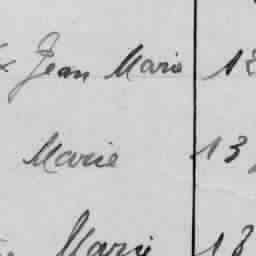 Jean Marie
Marie 13
Marie